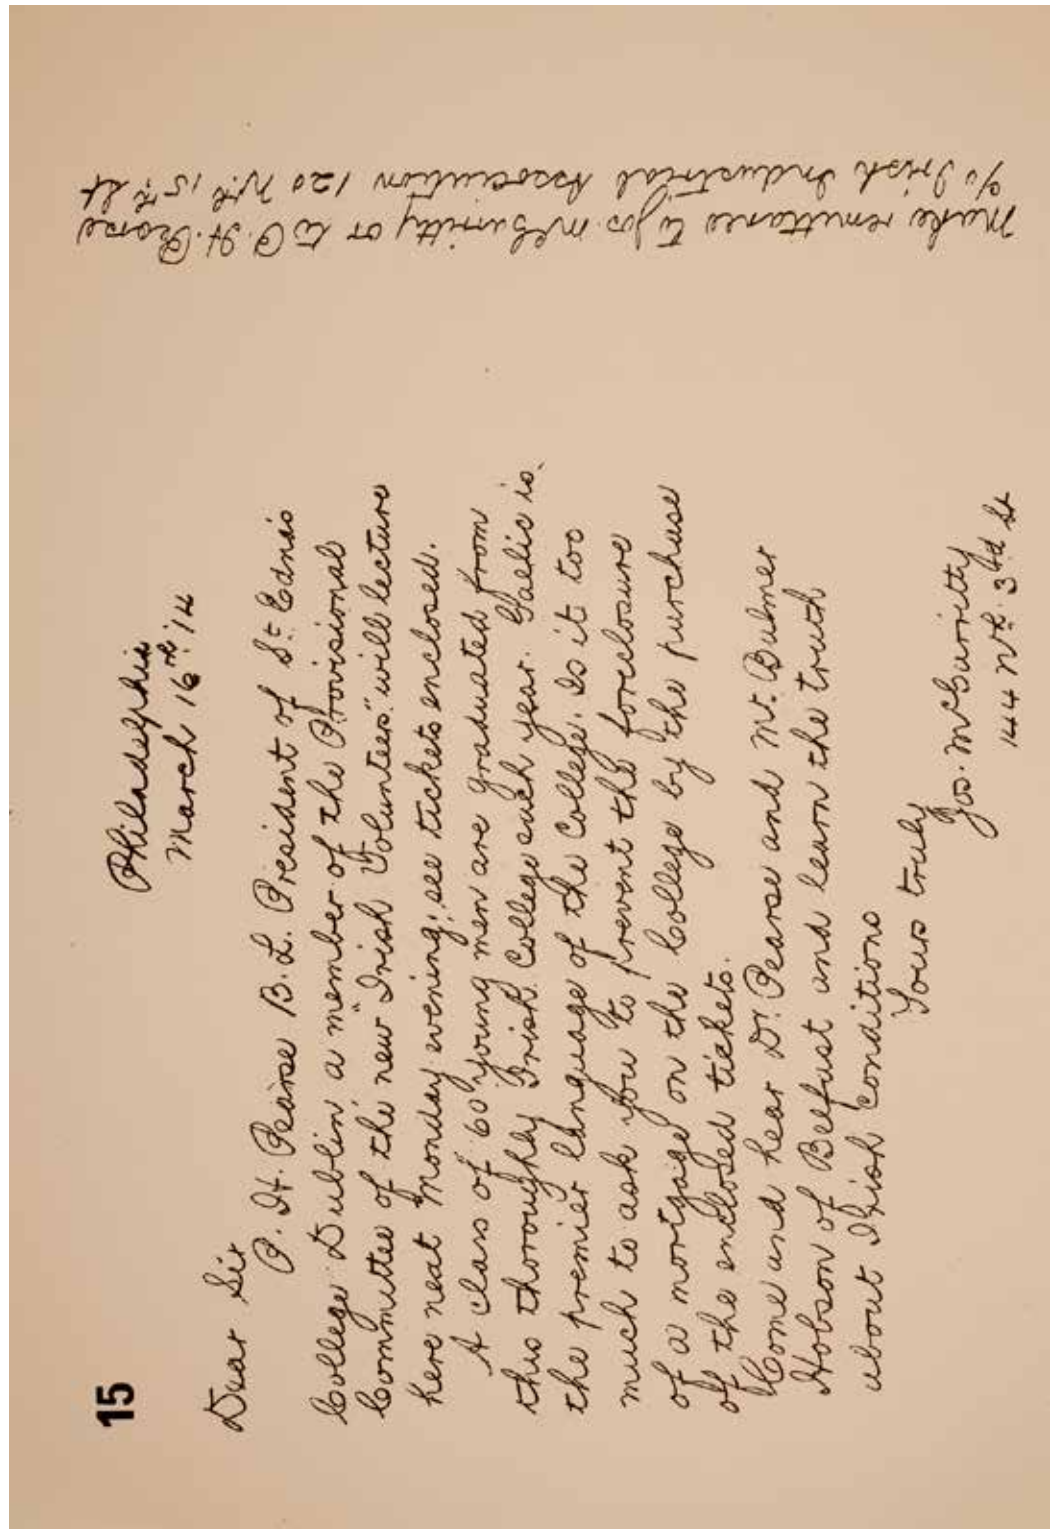 15
Philadelphia
March 16th '14
Dear Sir
P. H. Pearse B. L. President of St. Ednas
College Dublin a member of the Provisional
Committee of the new "Irish Volunteers" will lecture
here next Monday evening; see tickets enclosed.
A class of 60 young men are graduated from
this thoroughly Irish College each year. Gaelic is
the premier language of the College. Is it too
much to ask you to prevent the foreclosure
of a mortgage on the College by the purchase
of the enclosed tickets.
Come and hear Dr. Pearse and Mr. Bulmer
Hobson of Belfast and learn the truth
about Irish conditions
Yours truly
Jos. McGarrity
144 Nth. 3rd St
Make remittance to Jos. McGarrity or to P. H. Pearse
c/o Irish Industrial Association 120 Nth 15th St